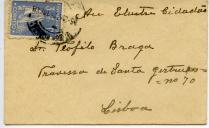 Ao Illustre Cidadão
Dr. Teofilo Braga
Travessa de Santa Gertrudes
nº 70
Lisboa